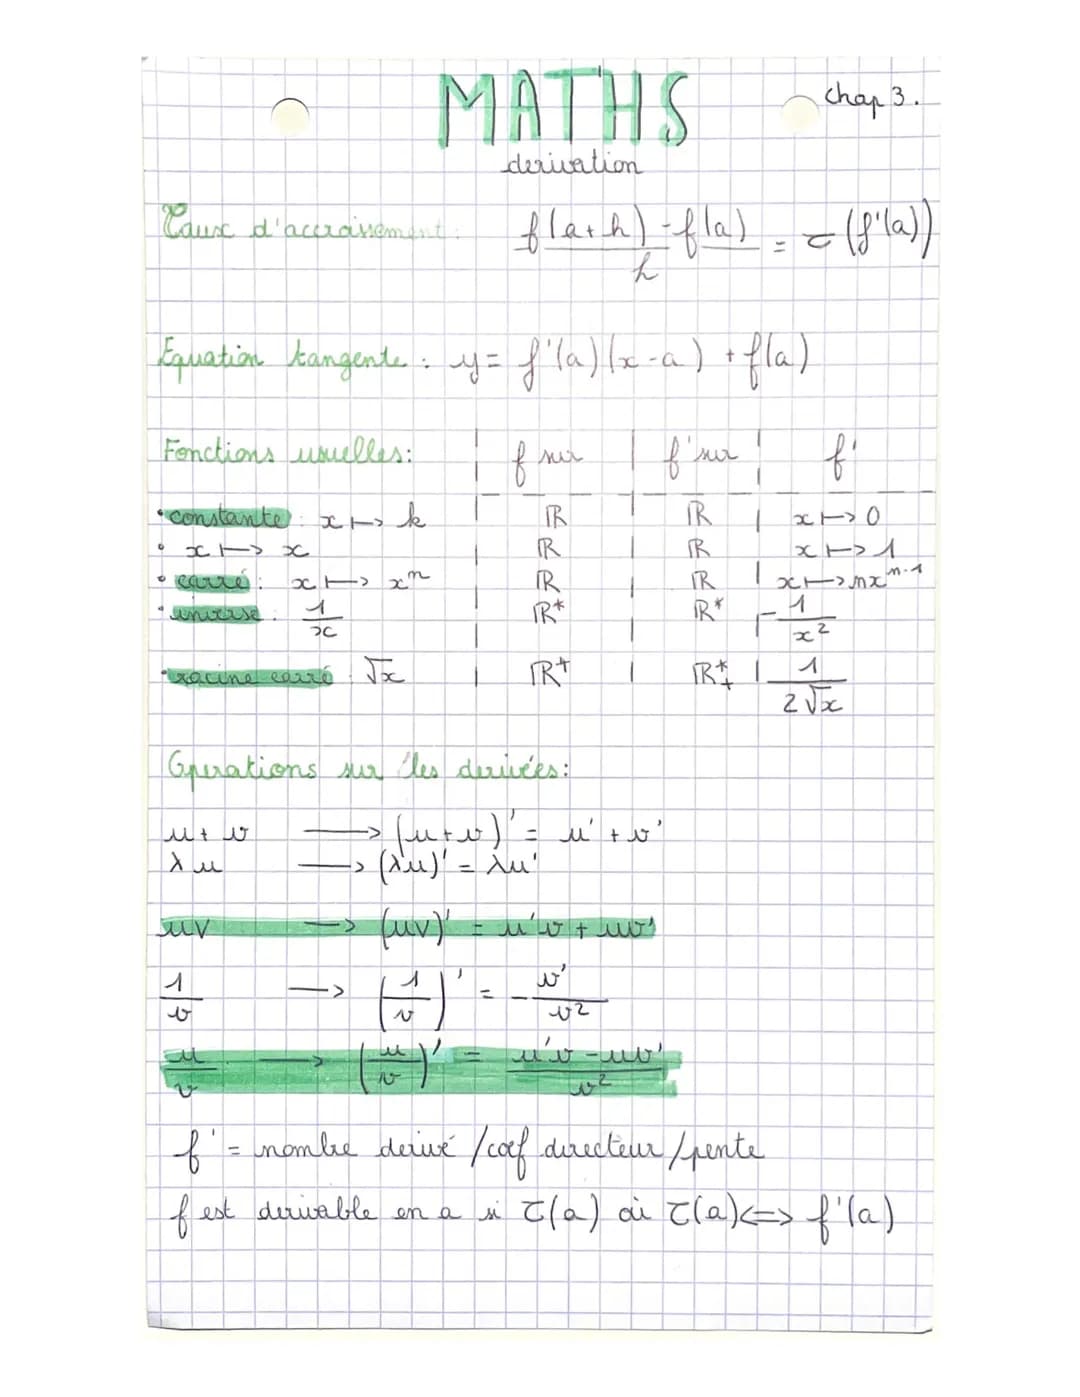 MATHS
chap 3.
derivation
Taux d'accroissement : f(a+h)-f(a) / h = τ (f'(a))
Equation tangente : y = f'(a)(x-a) + f(a)
Fonctions usuelles: | f sur | f' sur | f'
• constante : x ↦ k | ℝ | ℝ | x ↦ 0
• x ↦ x | ℝ | ℝ | x ↦ 1
• carré : x ↦ xⁿ | ℝ | ℝ | x ↦ nxⁿ⁻¹
• inverse : 1/x | ℝ* | ℝ* | -1/x²
• racine carré : √x | ℝ+ | ℝ*+ | 1/2√x
Operations sur les derivées:
u + v → (u+v)' = u' + v'
λu → (λu)' = λu'
uv → (uv)' = u'v + uv'
1/v → (1/v)' = -v'/v²
u/v → (u/v)' = u'v - uv'/v²
f' = nombre derivé /coef directeur /pente
f est derivable en a si τ(a) où τ(a) <=> f'(a)